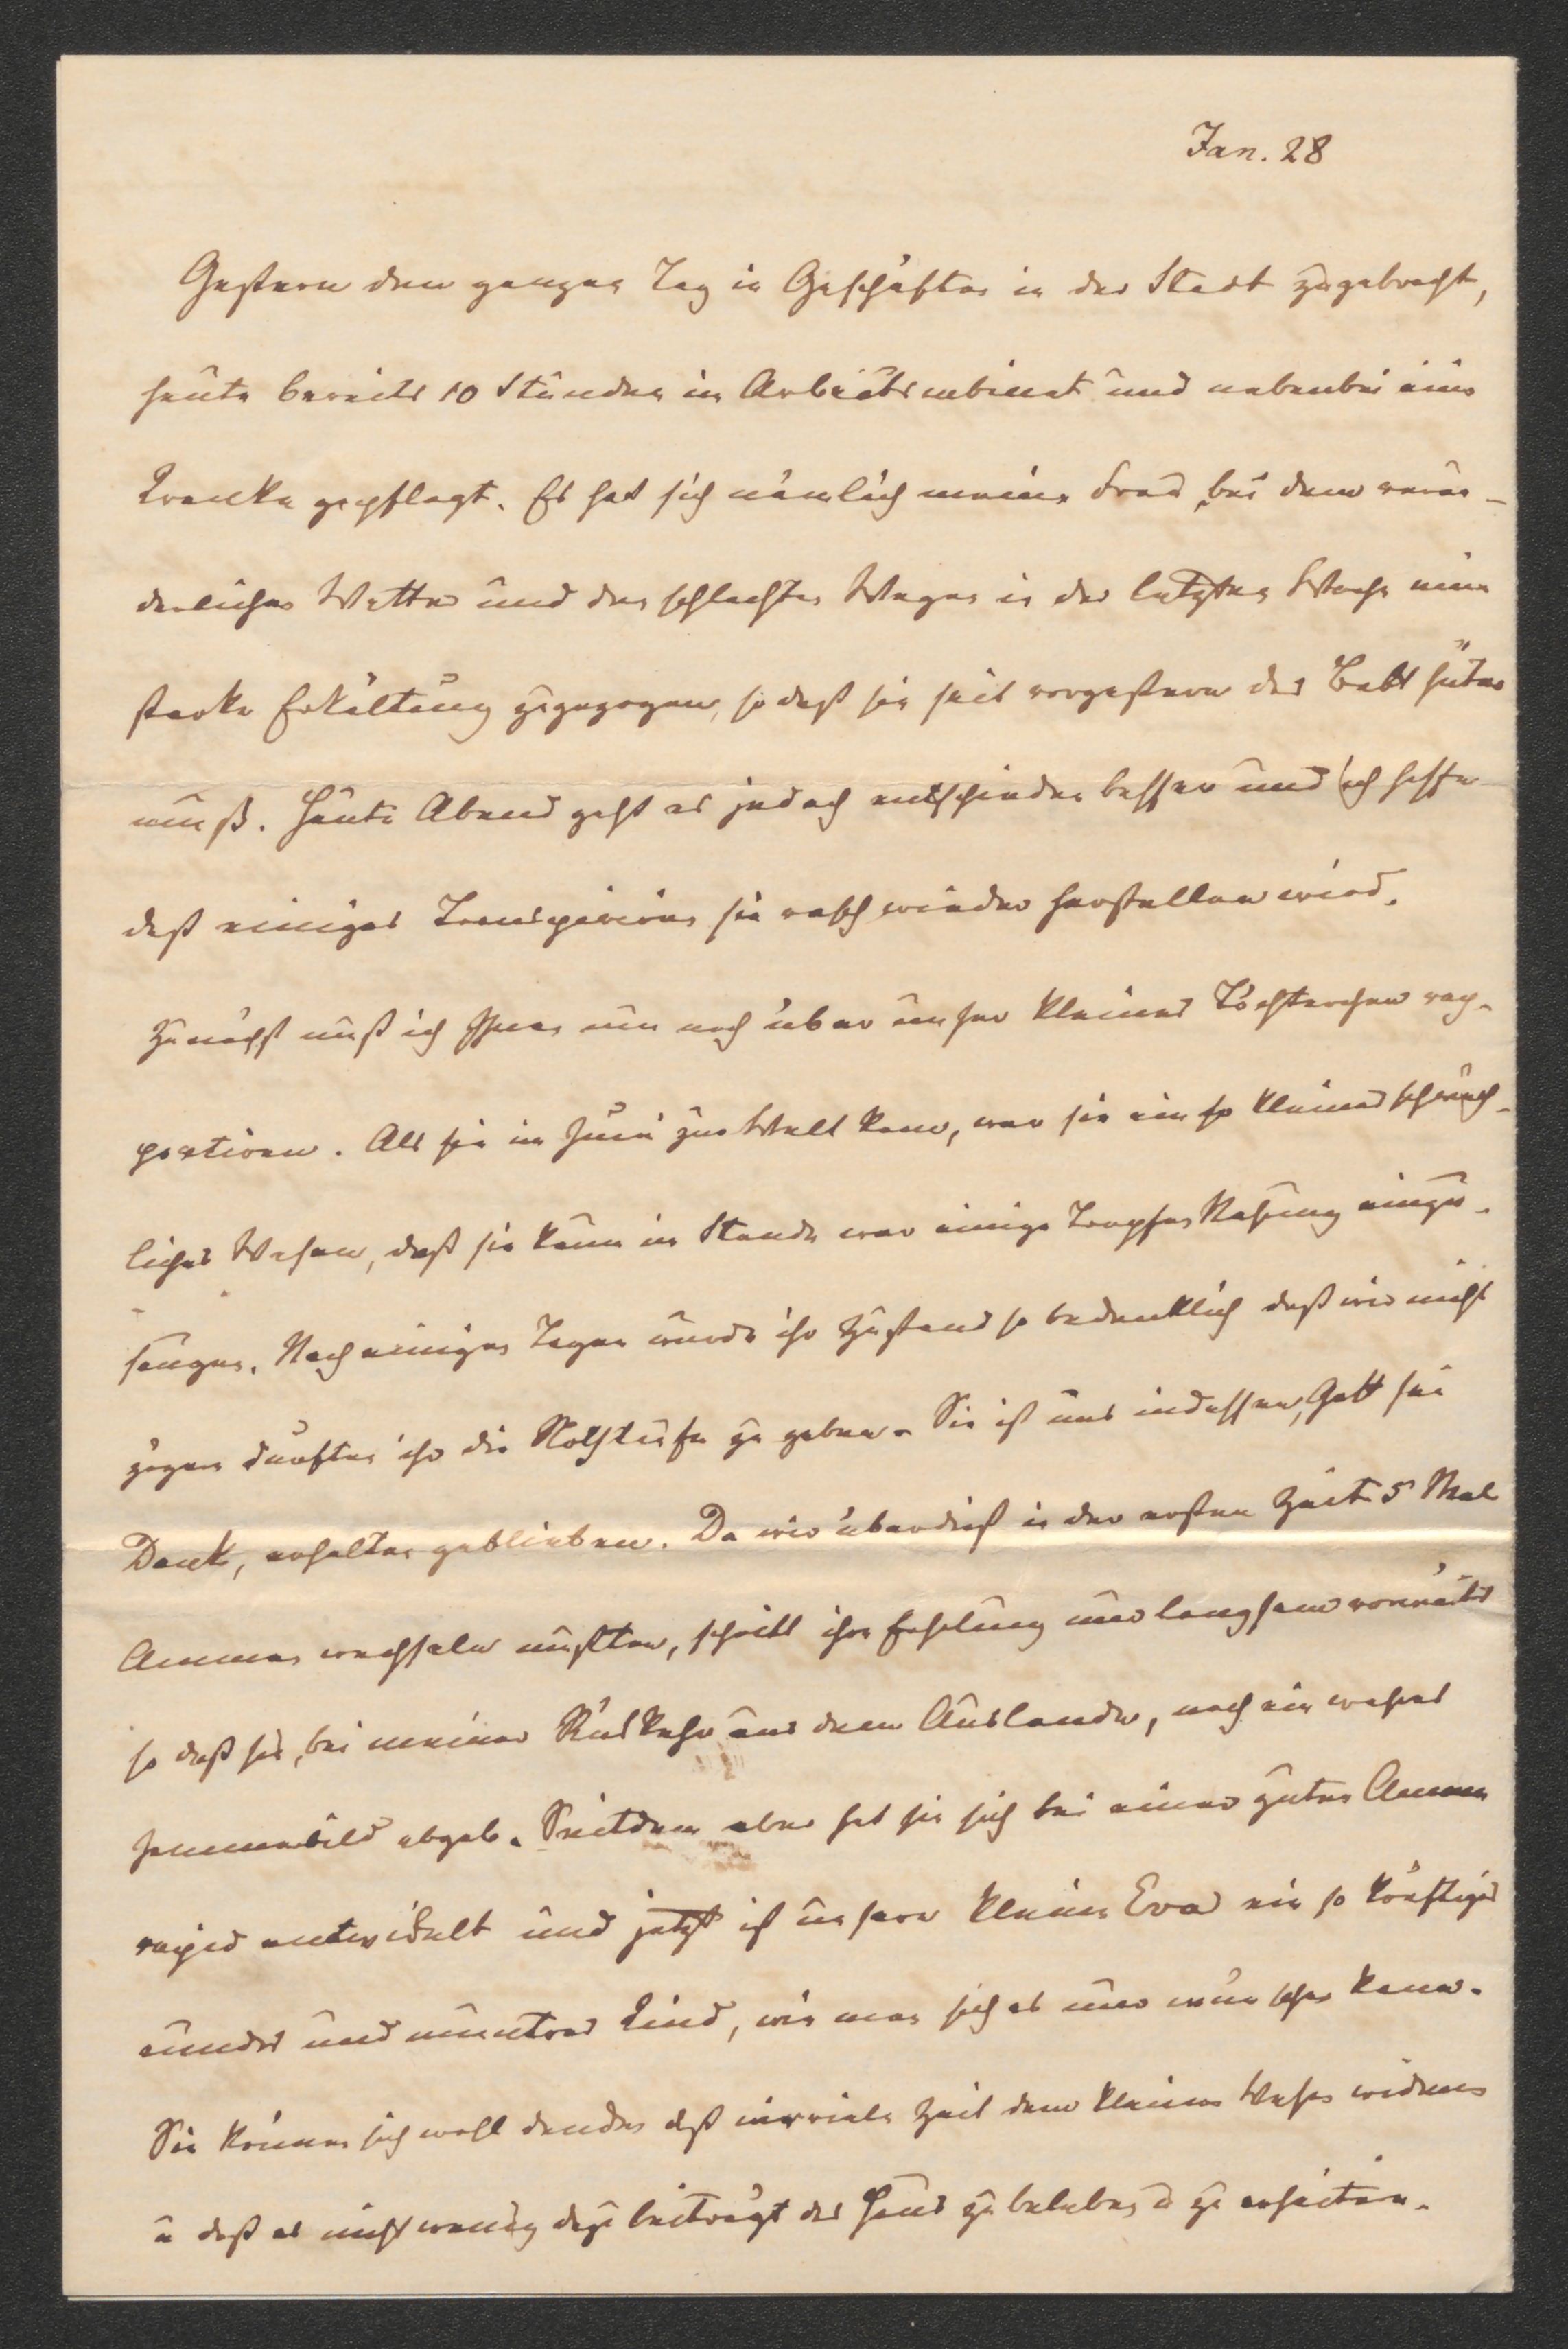 Jan. 28
Gestern den ganzen Tag in Geschäften in der Stadt zugebracht,
heute bereits 10 Stunden im Arbeitscabinet und nebenbei eine
Kranke gepflegt. Es hat sich nämlich meine Frau, bei dem verän-
derlichen Wetter und den schlechten Wegen in der letzten Woche eine
starke Erkältung zugezogen, so daß sie seit vorgestern das Bett hüten
muß. Heute Abend geht es jedoch entschieden besser und ich hoffe
daß einiges Transpiriren sie rasch wieder herstellen wird.
Zunächst muß ich Ihnen nun noch über unser kleines Töchterchen rap-
portiren. Als sie im Juni zur Welt kam, war sie ein so kleines schwäch-
liches Wesen, daß sie kaum im Stande war einige Tropfen Nahrung einzu-
saugen. Nach einigen Tagen wurde ihr Zustand so bedenklich daß wir nicht
zögern durften ihr die Nothtaufe zu geben. Sie ist uns indessen, Gott sei
Dank, erhalten geblieben. Da wir überdieß in der ersten Zeit 5 Mal
Ammen wechseln mußten, schritt ihre Erholung nur langsam vorwärts
so daß sie, bei meiner Rückkehr aus dem Auslande, noch ein wahres
Jammerbild abgab. Seitdem aber hat sie sich bei einer guten Amme
rapid entwickelt und jetzt ist unsere kleine Eva ein so kräftiges
rundes und muntres Kind, wie man sich es nur wünschen kann.
Sie können sich wohl denken daß wir viele Zeit dem kleinen Wesen widmen
u daß es nicht wenig dazu beiträgt das Haus zu beleben u zu erheitern.